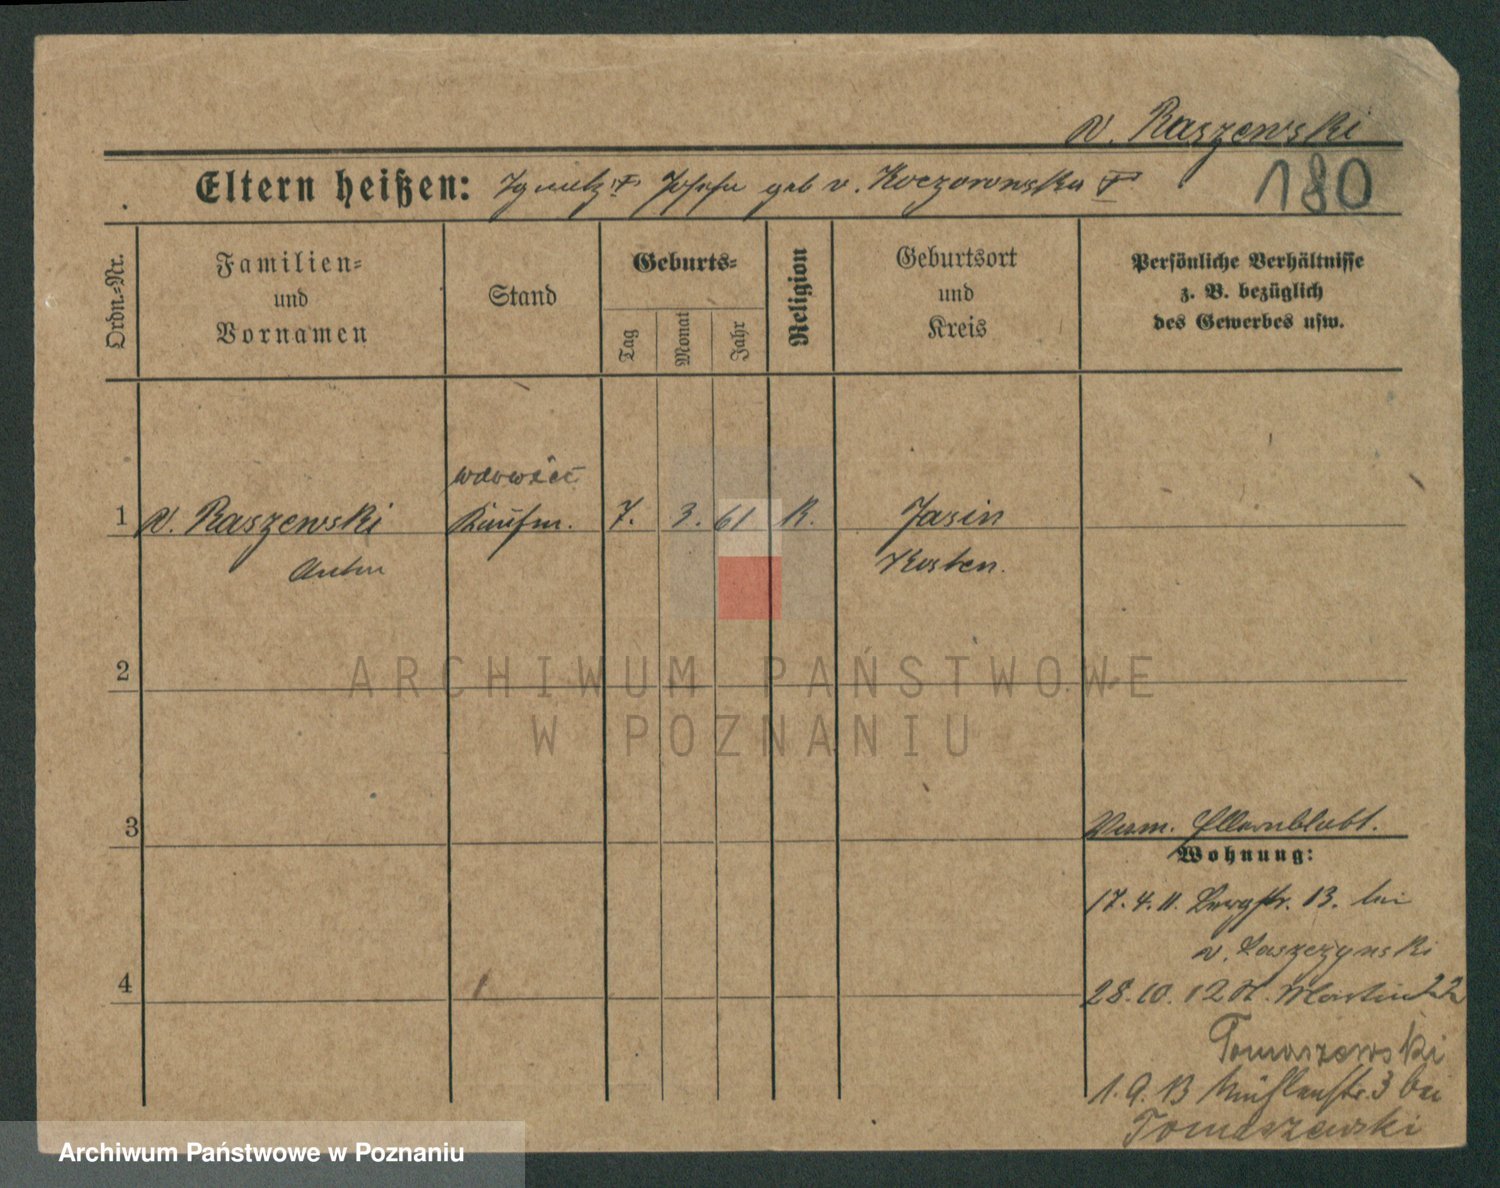 v. Raszewski
180
Eltern heißen: Ignatz † Josefa geb v. Koczorowska †
Ordn.-Nr.
Familien-
und
Vornamen
Stand
Geburts-
Tag
Monat
Jahr
Religion
Geburtsort
und
Kreis
Persönliche Verhältnisse
z. B. bezüglich
des Gewerbes usw.
1
v. Raszewski
Anton
Kaufm.
7.
3.
61
K.
Jasin
Kosten.
2
3
4
Wohnung:
17.4.11. Bergstr. 13. bei
v. Laszczynski
28.10.12 St. Martin 22
Tomaszewski
1.9.13 Mühlenstr. 3 bei
Tomaszewski
ARCHIWUM PAŃSTWOWE
W POZNANIU
Archiwum Państwowe w Poznaniu